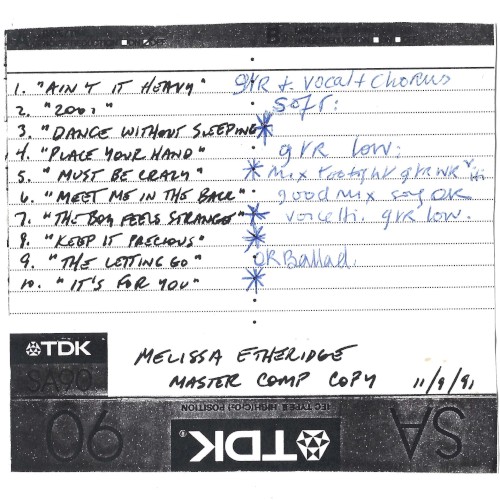 B
1. "AIN'T IT HEAVY" GTR + VOCAL + CHORUS
2. "2001" SOFT:
3. "DANCE WITHOUT SLEEPING *
4. "PLACE YOUR HAND" gtr low:
5. "MUST BE CRAZY" * mix
6. "MEET ME IN THE BACK" good mix song OK
7. "THE BOY FEELS STRANGE" * voice Hi. gtr low.
8. "KEEP IT PRECIOUS" *
9. "THE LETTING GO" OK Ballad
10. "IT'S FOR YOU" *
TDK
SA90
MELISSA ETHERIDGE
MASTER COMP COPY 11/9/91
IEC TYPE II HIGH (CrO2) POSITION
SA TDK® 90